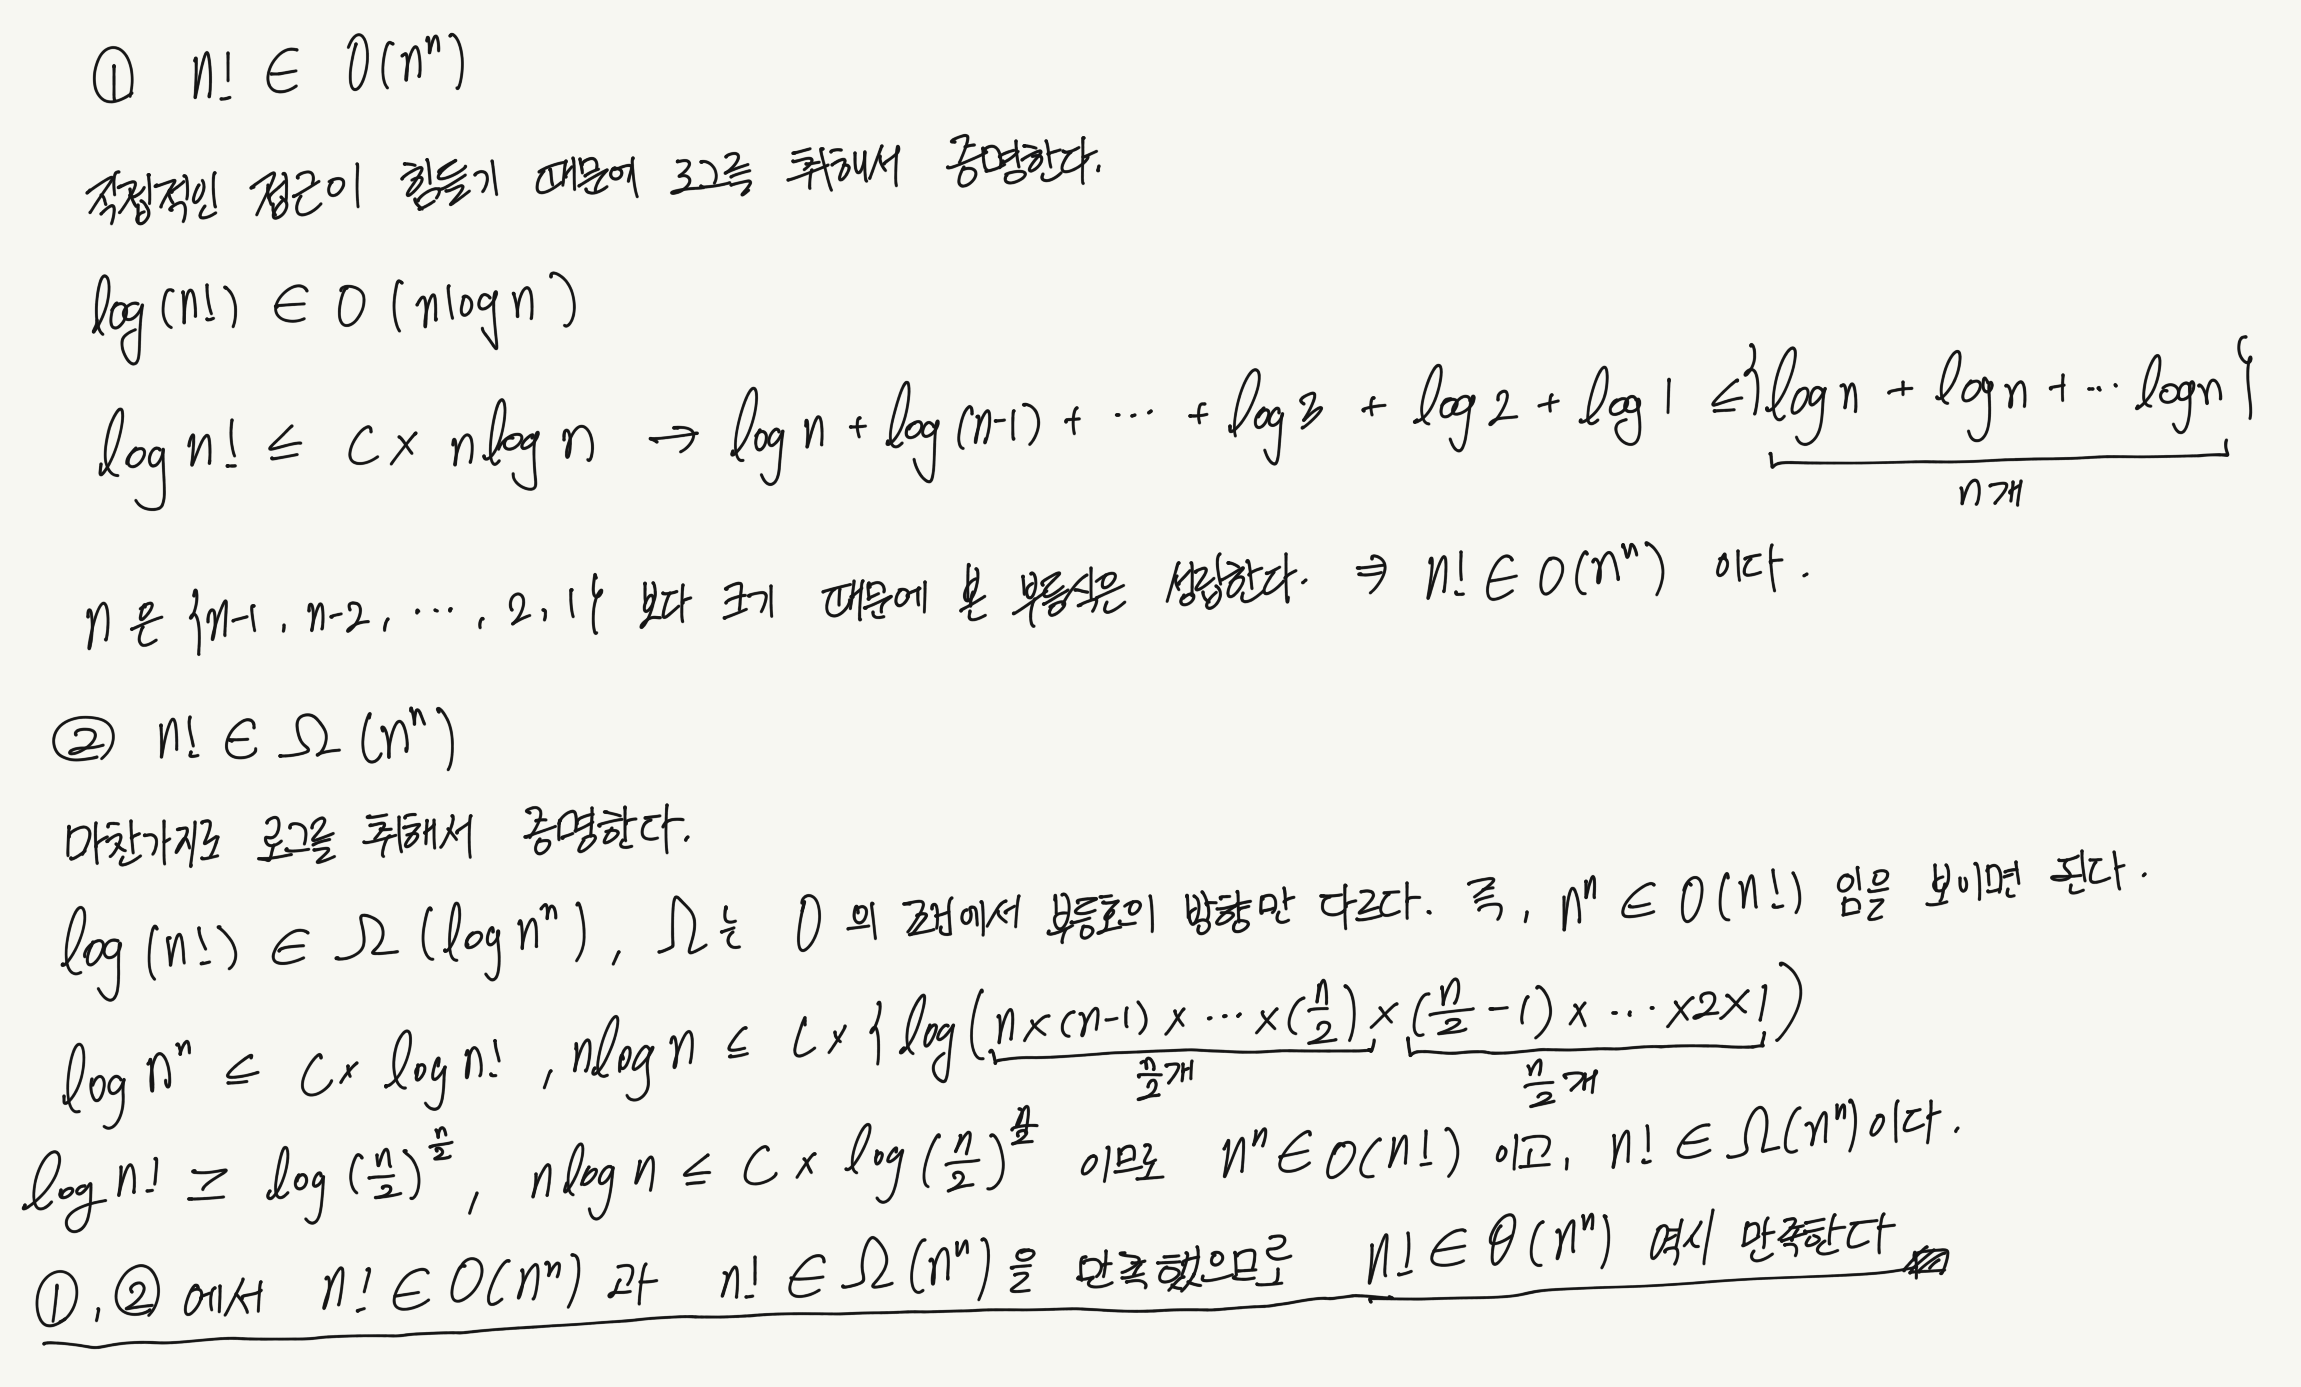 ① n! ∈ O(nⁿ)
직접적인 접근이 힘들기 때문에 로그를 취해서 증명한다.
log(n!) ∈ O(nlogn)
log n! ≤ C × nlog n → log n + log(n-1) + ⋯ + log 3 + log 2 + log 1 ≤ {log n + log n + ⋯ log n}
n개
n은 {n-1, n-2, ⋯, 2, 1} 보다 크기 때문에 본 부등식은 성립한다. ⇒ n! ∈ O(nⁿ) 이다.
② n! ∈ Ω(nⁿ)
마찬가지로 로그를 취해서 증명한다.
log(n!) ∈ Ω(log nⁿ), Ω는 O의 조건에서 부등호의 방향만 다르다. 즉, nⁿ ∈ O(n!) 임을 보이면 된다.
log nⁿ ≤ C × log n!, nlog n ≤ C × { log(n×(n-1)×⋯×(n/2)×(n/2-1)×⋯×2×1)
n/2개 n/2개
log n! ≥ log(n/2)^(n/2), nlog n ≤ C × log(n/2)^(n/2) 이므로 nⁿ ∈ O(n!) 이고, n! ∈ Ω(nⁿ)이다.
①, ② 에서 n! ∈ O(nⁿ) 과 n! ∈ Ω(nⁿ)을 만족했으므로 n! ∈ θ(nⁿ) 역시 만족한다